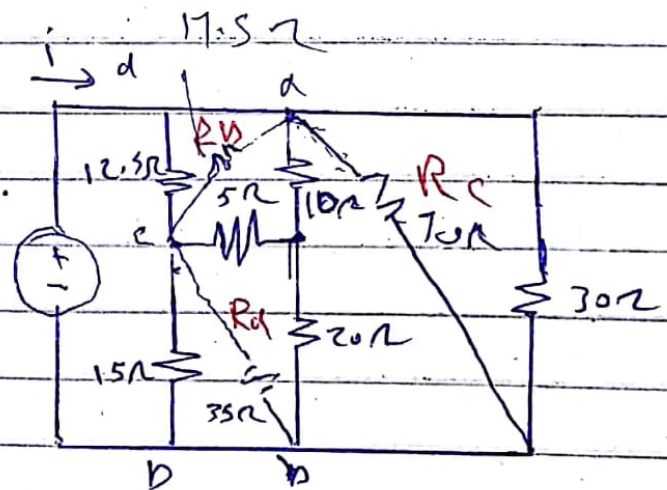 17.5Ω
i
d
a
Rb
12.5Ω
5Ω
10Ω
Rc
70Ω
c
+
-
30Ω
Ra
20Ω
15Ω
35Ω
b
b